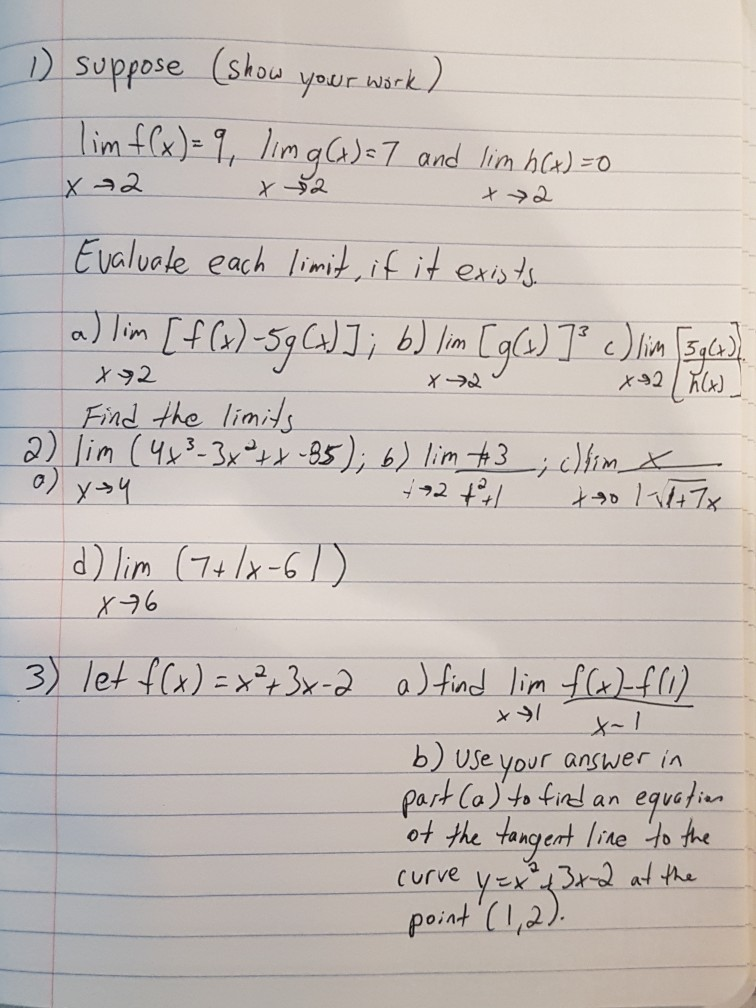 1) suppose (show your work)
lim f(x)=9, lim g(x)=7 and lim h(x)=0
x→2 x→2 x→2
Evaluate each limit, if it exists.
a) lim [f(x)-5g(x)]; b) lim [g(x)]³ c) lim [5g(x)/h(x)]
x→2 x→2 x→2
Find the limits
2) lim (4x³-3x²+x-85); b) lim t3/t²+1; c) lim x/1-√1+7x
a) x→4 t→2 x→0
d) lim (7+|x-6|)
x→6
3) let f(x)=x²+3x-2 a) find lim f(x)-f(1)
x→1 x-1
b) Use your answer in
part (a) to find an equation
of the tangent line to the
curve y=x²+3x-2 at the
point (1,2).